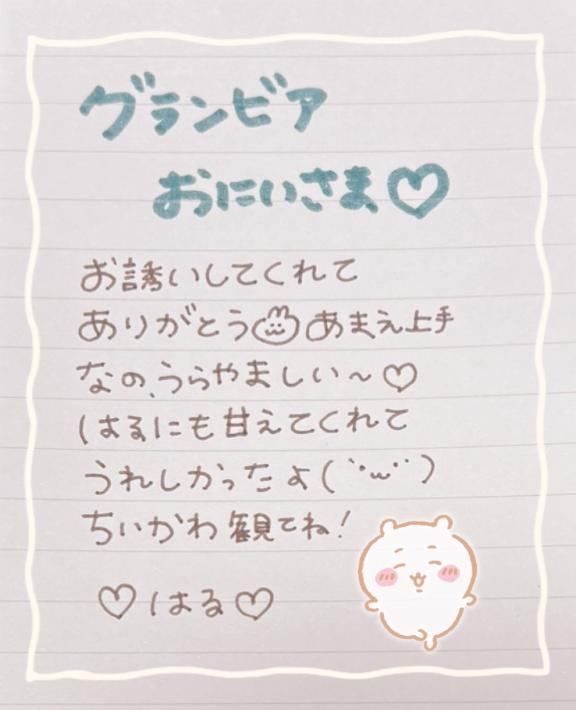 グランビア
おにいさま♡
お誘いしてくれて
ありがとう あまえ上手
なの、うらやましい～♡
はるにも甘えてくれて
うれしかったよ(｀･ω･´)
ちいかわ観てね！
♡はる♡